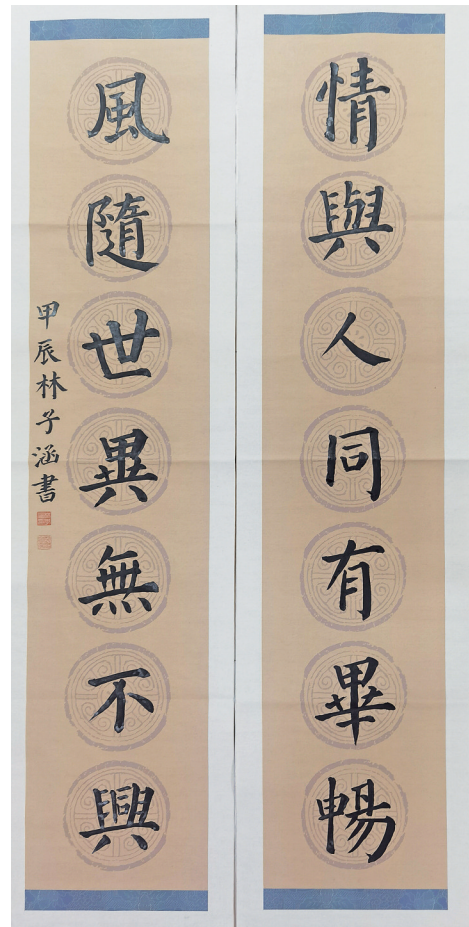 情與人同有畢暢
風隨世異無不興
甲辰林子涵書